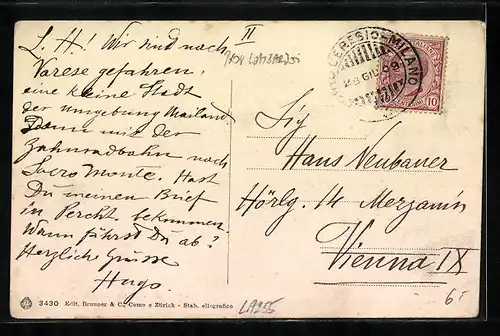 L. H! Wir sind nach
Varese gefahren,
eine kleine Stadt
der Umgebung Mailand.
Dann mit der
Zahnradbahn nach
Sacro Monte. Hast
Du meinen Brief
in Percht bekommen.
Wann fährst Du ab?
Herzliche Grüsse
Hugo.
II
CERESIO-MILANO
23 GIU 09
10
Sig
Hans Neubauer
Hörlg. 14 Merzamin
Vienna IX
6.-
3430 Edit. Brunner & C., Como e Zürich - Stab. eliografico
LA255